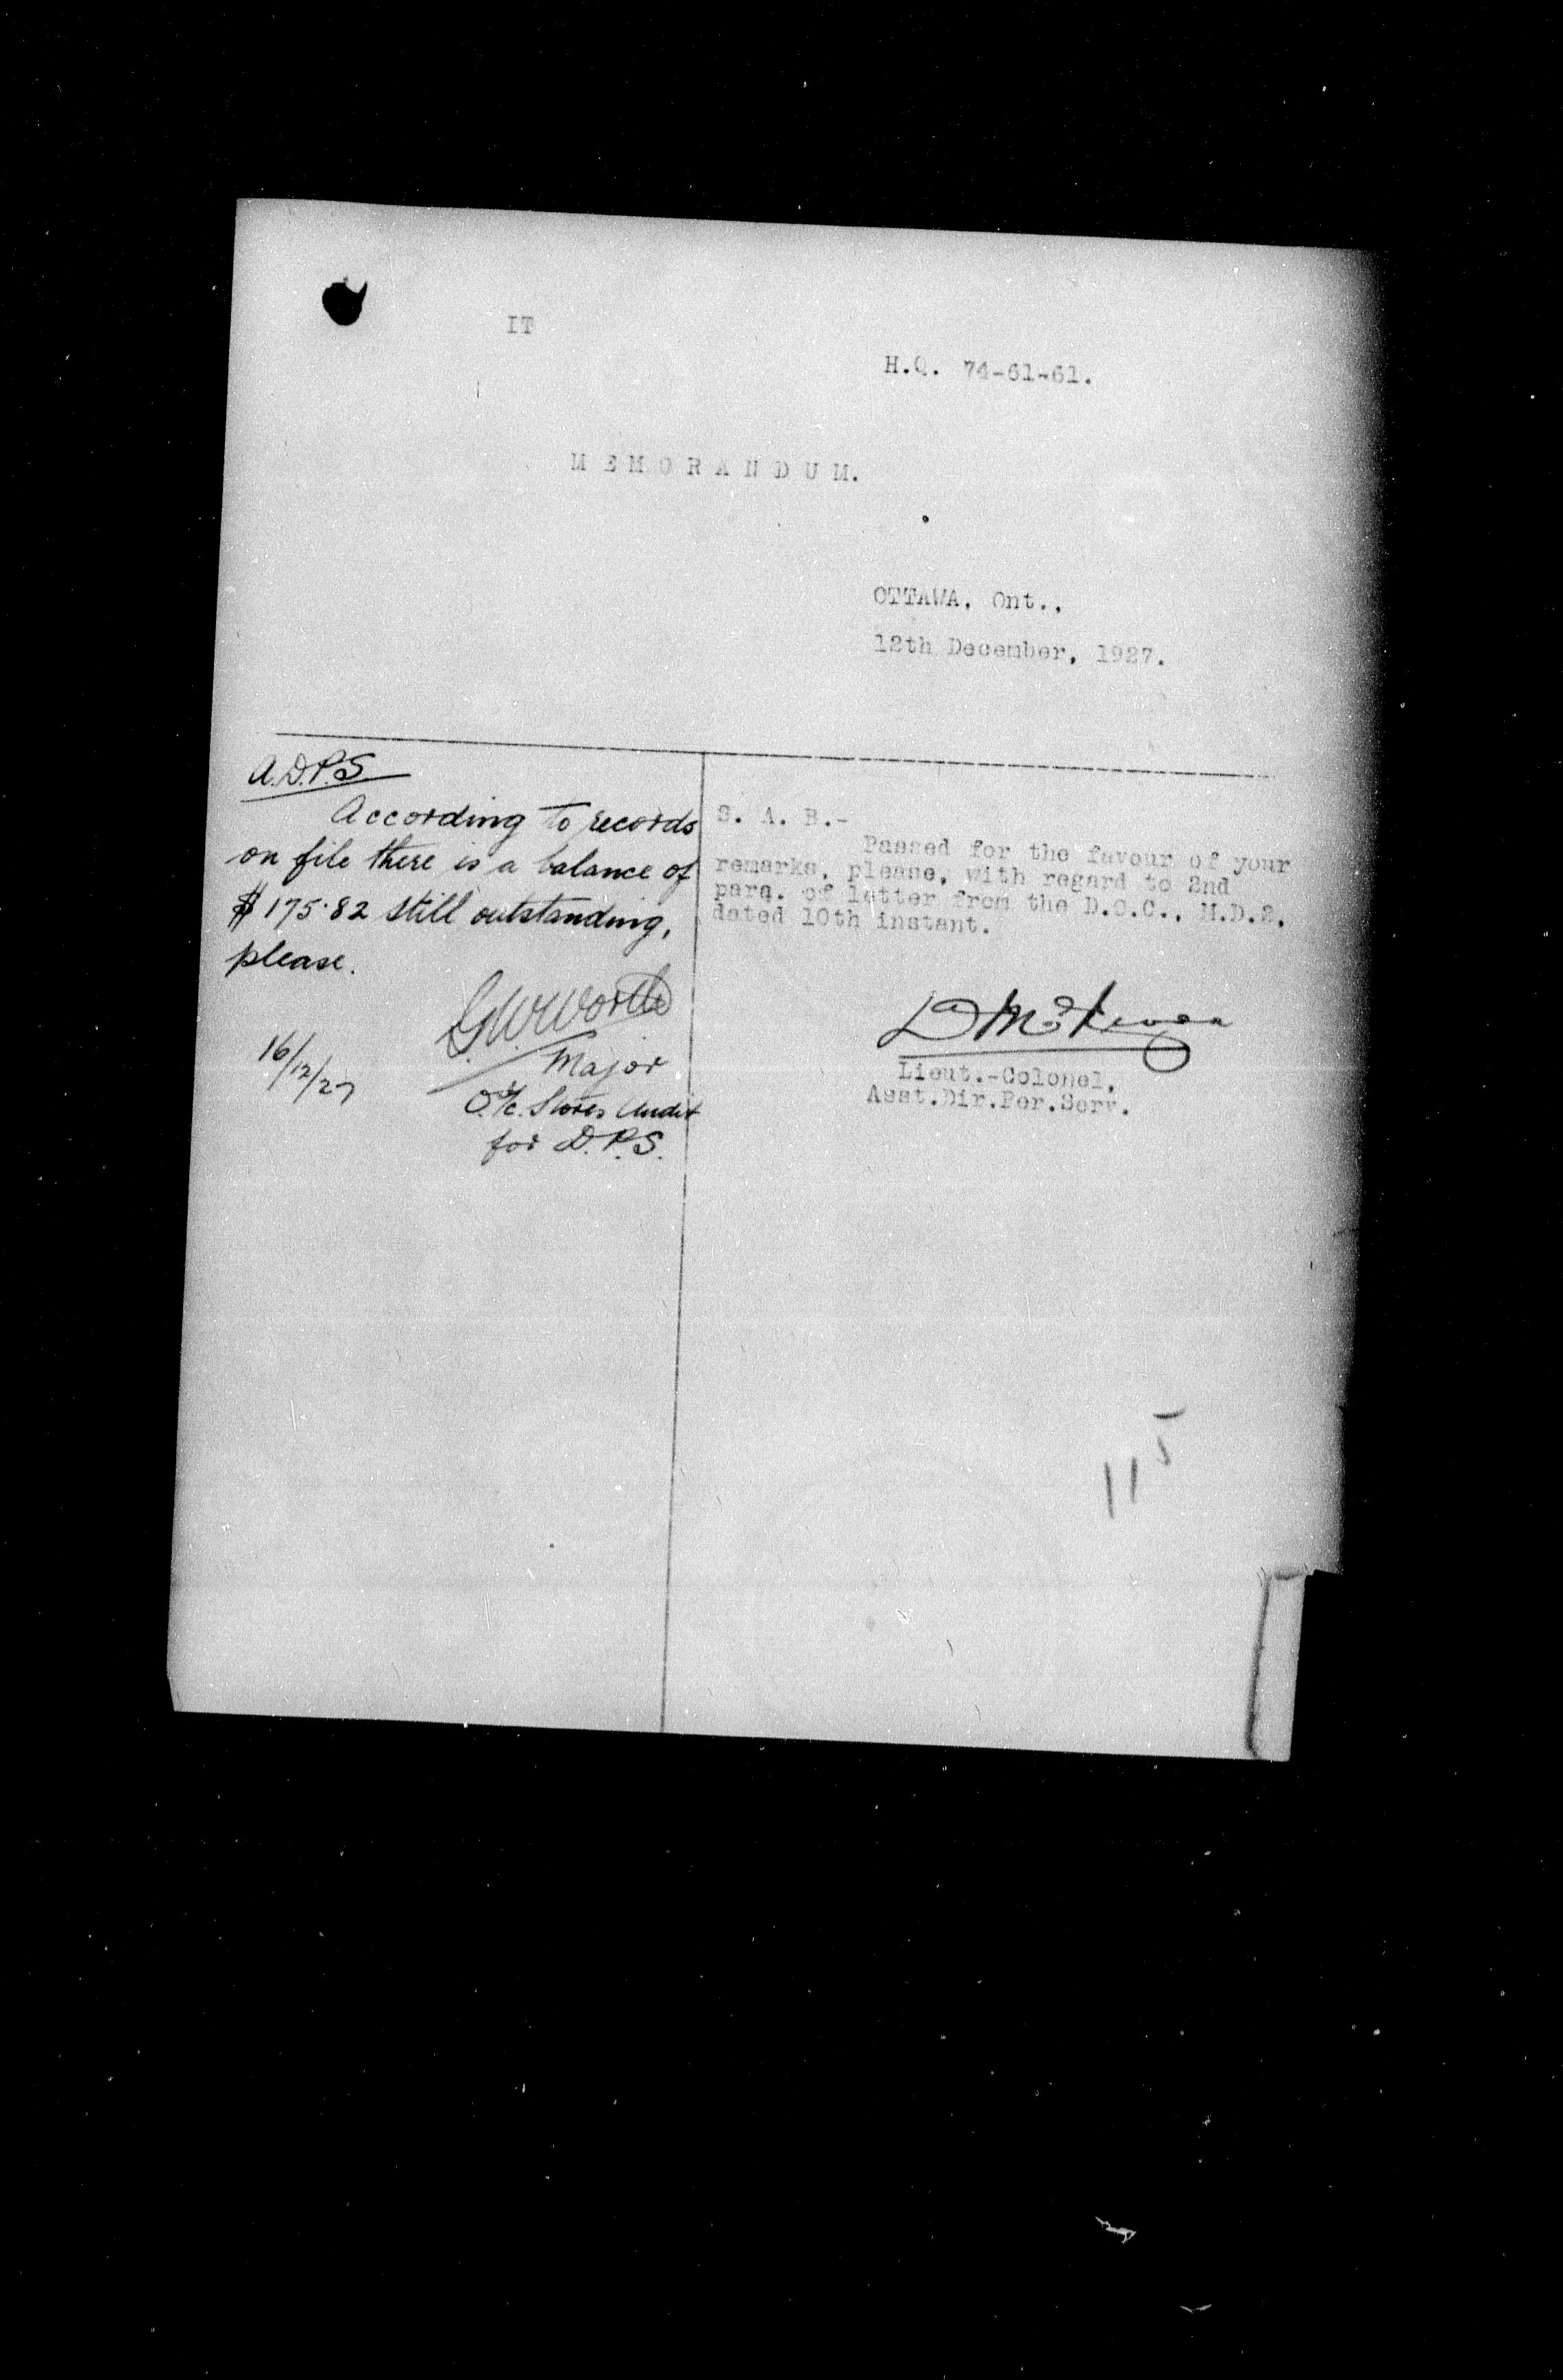 IT
H.Q. 74-61-61.
MEMORANDUM.
OTTAWA, Ont.,
12th December, 1927.
A.D.P.S
According to records
on file there is a balance of
$175.82 still outstanding,
please.
G.W. Worth
Major
O. i/c. Stores Audit
for D.P.S.
16/12/27
S. A. B.-
Passed for the favour of your
remarks, please, with regard to 2nd
para. of letter from the D.O.C., M.D.2,
dated 10th instant.
Lieut.-Colonel,
Asst.Dir.Per.Serv.
115